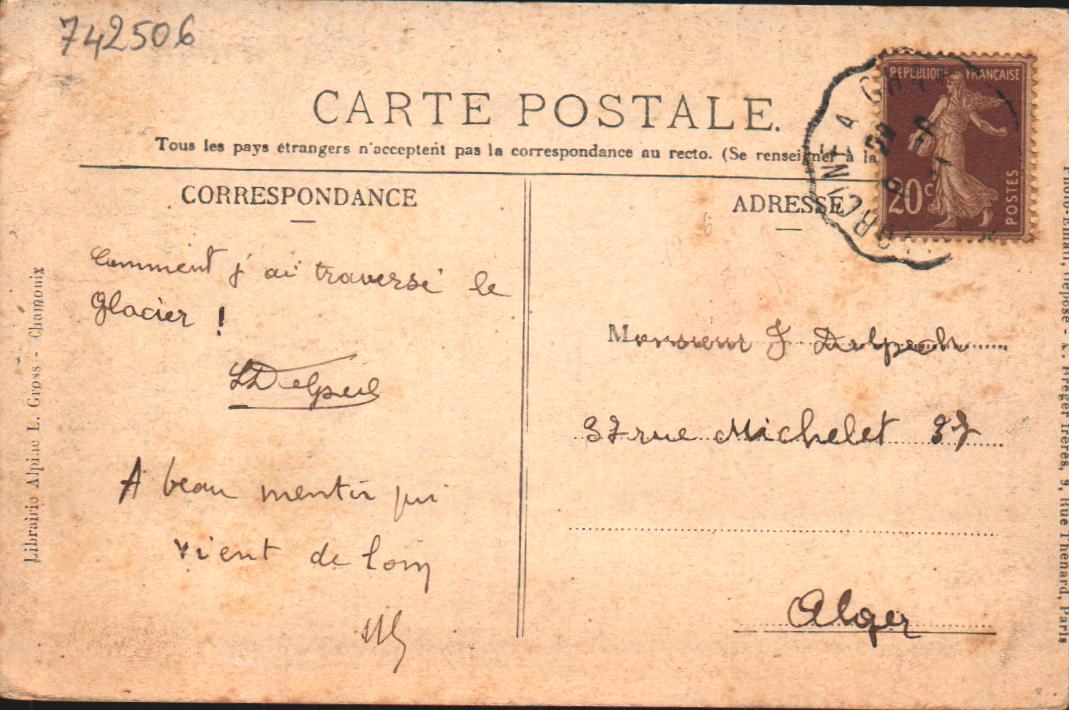 742506
CARTE POSTALE.
Tous les pays étrangers n'acceptent pas la correspondance au recto. (Se renseigner à la
CORRESPONDANCE
Comment j'ai traversé le
glacier !
A beau mentir qui
vient de loin
ADRESSE
REPUBLIQUE FRANÇAISE
20c
POSTES
Monsieur J Delpech
37 rue Michelet 37
Alger
Librairie Alpine L. Gross - Chamonix
déposé - L. Kreger frères, 9, Rue Thénard, Paris